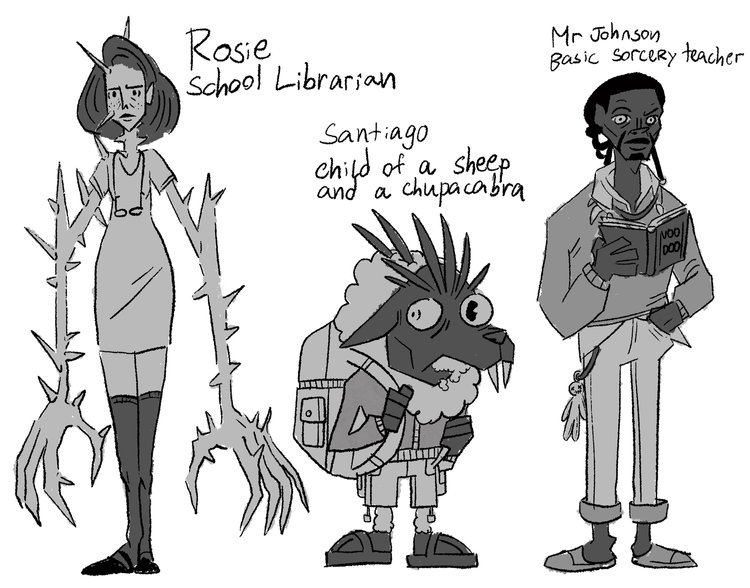 Rosie
School Librarian
Santiago
child of a sheep
and a chupacabra
Mr Johnson
Basic sorcery teacher
VOO
DOO